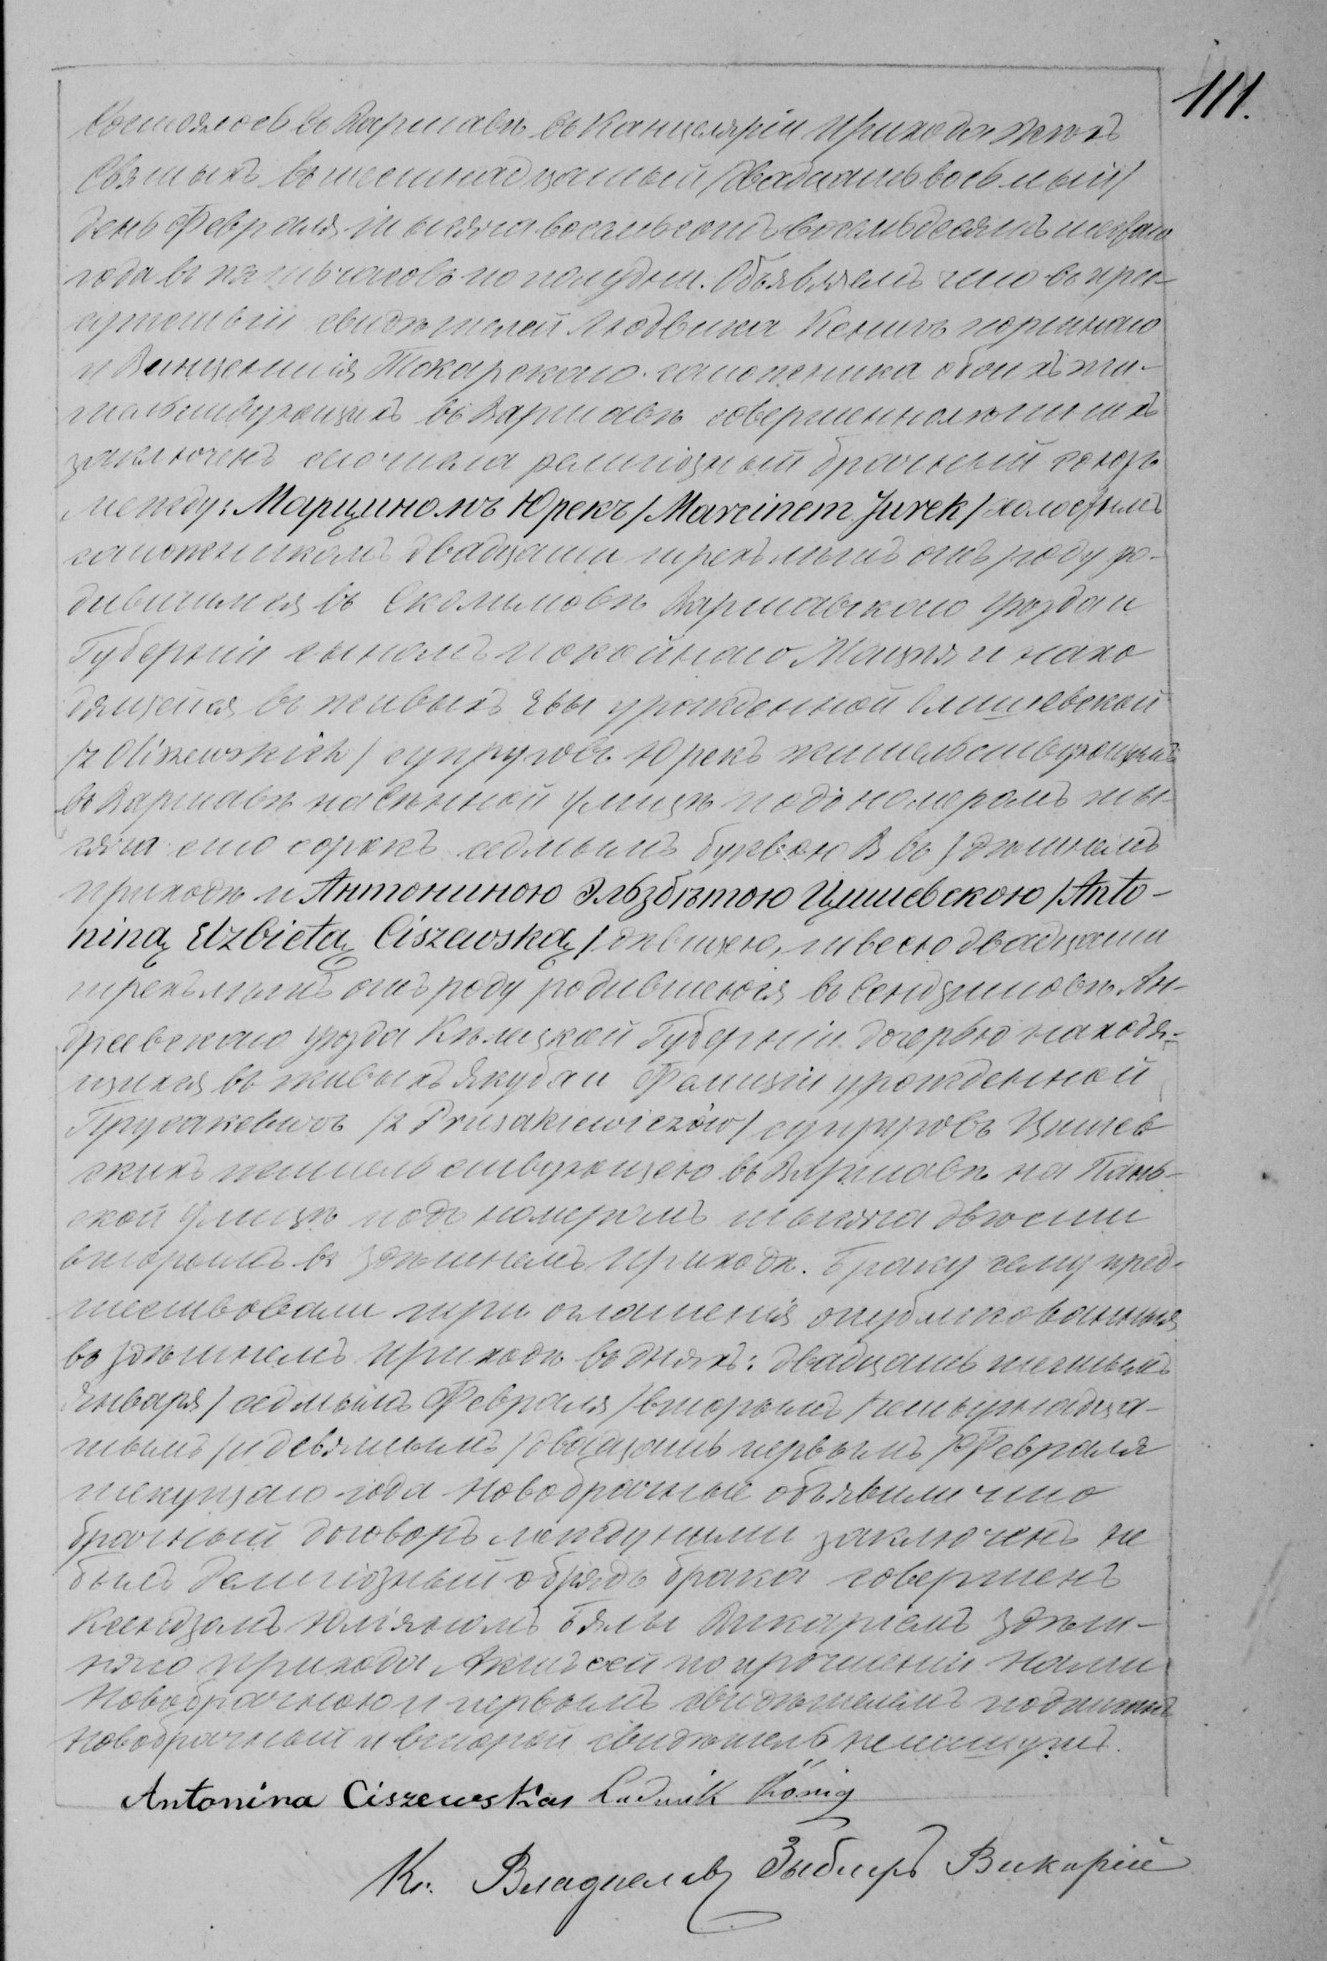 111.
Состоялось въ Варшавѣ въ Канцеляріи прихода Всѣхъ
Святыхъ въ шестнадцатый /двадцать восьмый/
день Февраля тысяча восемьсотъ восемьдесятъ
года въ пять часовъ по полудни. Объявляемъ что въ при-
сутствіи свидѣтелей Людвика Кенигъ
и Винцентія Токарскаго сапожника обоихъ жи-
тельствующихъ въ Варшавѣ совершеннолѣтнихъ
заключенъ сего числа религіозный брачный союзъ
между: Марциномъ Юрекъ /Marcinem Jurek/ холостымъ
сапожникомъ двадцати трехъ лѣтъ отъ роду ро-
дившимся въ Сколимовѣ Варшавскаго уѣзда и
Губерніи сыномъ покойнаго Мацѣя и нахо
дящейся въ живыхъ Эвы урожденной Олишевской
/z Oliszewskich/ супруговъ Юрекъ жительствующимъ
въ Варшавѣ на Сѣнной улицѣ подъ номеромъ ты-
сяча сто сорокъ седьмымъ буквою В въ здѣшнемъ
приходѣ и Антониною Эльзбѣтою Цишевскою /Anto-
niną Elzbietą Ciszewską/ дѣвицею, двадцати
трехъ лѣтъ отъ роду родившеюся въ Сендзишовѣ Ан-
дреевскаго уѣзда Кѣлецкой Губерніи дочерью находя-
щихся въ живыхъ Якуба и Фелиціи урожденной
Прусакевичъ /z Prusakiewiczów/ супруговъ Цишев
скихъ жительствующею въ Варшавѣ на Пань-
ской улицѣ подъ номеромъ тысяча двѣсти
вторымъ въ здѣшнемъ приходѣ. Браку сему пред-
шествовали три оглашенія опубликованныя
въ здѣшнемъ приходѣ въ дняхъ: двадцать шестымъ
Января /седьмымъ Февраля/ вторымъ /четырнадца-
тымъ/ и девятымъ /двадцать первымъ/ Февраля
текущаго года Новобрачные объявили что
брачный договоръ между ними заключенъ не
былъ Религіозный обрядъ брака совершенъ
Ксендзомъ Юліяномъ Бялы Викаріемъ здѣш-
няго прихода. Актъ сей по прочтеніи нами
Новобрачною и первымъ свидѣтелемъ подписанъ
Новобрачный и вторый свидѣтель неписущіе.
Antonina Ciszewska Ludwik König
Кс. Владиславъ Зыбертъ Викарій